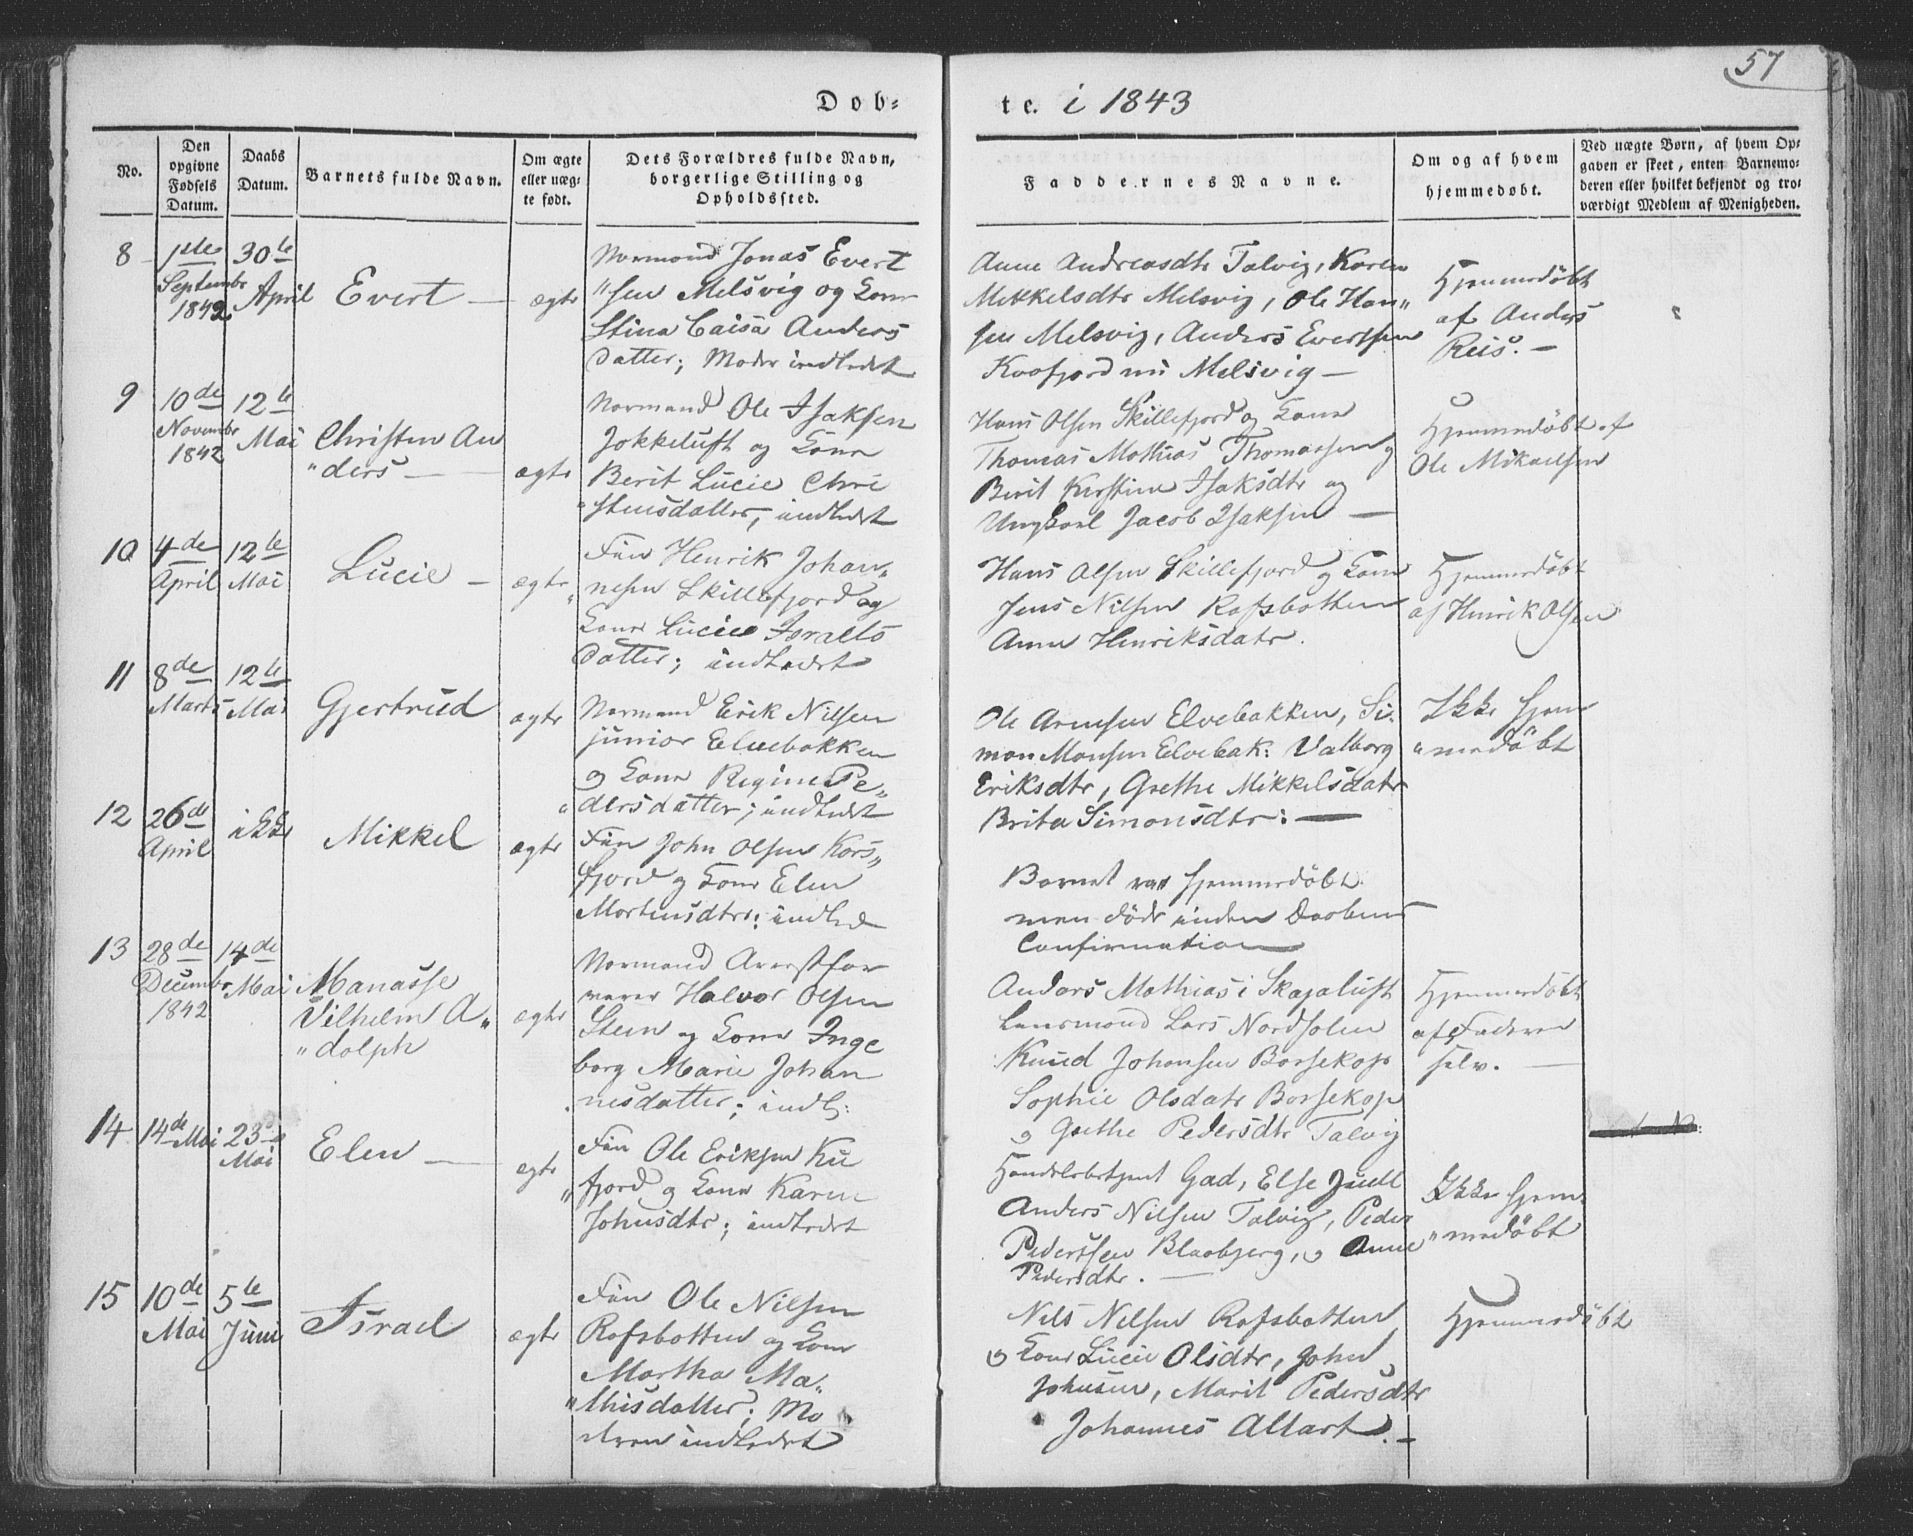 57
Døb=
te. i 1843
No.
Den
opgivne
Fødsels
Datum.
Daabs
Datum.
Barnets fulde Navn.
Om ægte
eller uæg=
te født.
Dets Forældres fulde Navn,
borgerlige Stilling og
Opholdssted.
Faddernes Navne.
Om og af hvem
hjemmedøbt.
Ved uægte Børn, af hvem Op=
gaven er skeet, enten Barnemo=
deren eller hvilket bekjendt og tro=
værdigt Medlem af Menigheden.
8
1ste
Septembr
1842
30te
April
Evert —
ægte
Normand Jonas Evert
"sen Melsvig og Kone
Stina Caisa Anders
Datter; Moder indledet
Anne Andreasdtr Talvig, Karen
Mikkelsdtr Melsvig, Ole Han„
sen Melsvig, Anders Evertsen
Kaafjord nu Melsvig —
Hjemmedøbt
af Anders
Reis. —
9
10de
Novembr
1842
12te
Mai
Christen An
"ders —
ægte
Normand Ole Isaksen
Jokkeluft og Kone
Berit Lucie Chri
"stensdatter, indledet
Hans Olsen Skillefjord og Kone
Thomas Mathias Thomassen og
Berit Kirstine Isaksdtr og
Ungkarl Jacob Isaksen —
Hjemmedøbt af
Ole Mikaelsen
10
4de
April
12te
Mai
Lucie —
ægte
Fin Henrik Johan„
"nesen Skillefjord og
Kone Lucie Israels
Datter; indledet
Hans Olsen Skillefjord og Kone
Jens Nilsen Rafsbotten
Anne Henriksdatr.
Hjemmedøbt
af Henrik Olsen
11
8de
Marts
12te
Mai
Gjertrud
ægte
Normand Erik Nilsen
junior Elvebakken
og Kone Regine Pe„
"dersdatter; indledet
Ole Arnesen Elvebakken, Si„
mon Monsen Elvebak: Valborg
Eriksdtr, Grethe Mikkelsdatr
Brita Simonsdtr: —
Ikke hjem
"medøbt
12
26de
April
ikke
Mikkel
ægte
Fin John Olsen Kors„
fjord og Kone Elen
Mortensdtr: indled
Barnet var hjemmedøbt
men døde inden Daabens
Confirmation
13
28de
Decembr
1842
14de
Mai
Manasse
Vilhelm A„
"dolph
ægte
Normand Arrestfor
varer Halvor Olsen
Steen og Kone Inge
borg Marie Johan
nesdatter; indl:
Anders Mathias i Skajaluft
Lensmand Lars Nordholm
Knud Johansen Bossekop
Sophie Olsdatr Bossekop
og Grethe Pedersdtr Talvig
Hjemmedøbt
af Faderen
selv. —
14
14de Mai
23de
Mai
Elen —
ægte
Fin Ole Eriksen Ku
"fjord og Kone Karen
Johnsdtr; indledet
Handelsbetjent Gad, Else Juell
Anders Nilsen Talvig, Peder
Pederssen Blaabjerg, og Anne
Pedersdtr. —
Ikke hjem
"medøbt
15
10de
Mai
5te
Juni
Israel
ægte
Fin Ole Nilsen
Rafsbotten og Kone
Martha Ma„
"thisdatter; Mo
deren indledet
Nils Nilsen Rafsbotten
og Kone Lucie Olsdtr, John
Johnsen, Marit Pedersdtr
Johannes Altart. —
Hjemmedøbt